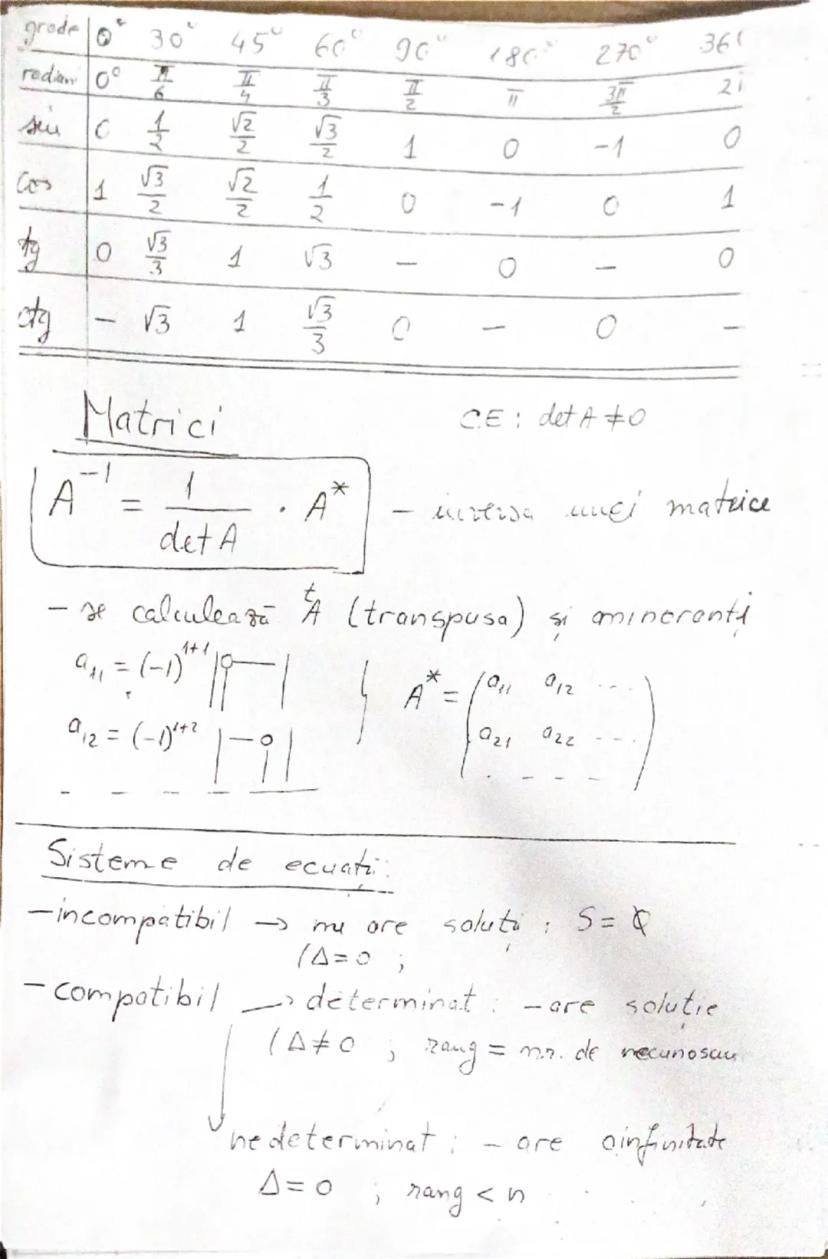 grade 0° 30° 45° 60° 90° 180° 270° 36
radian 0° π/6 π/4 π/3 π/2 π 3π/2 2π
sin 0 1/2 √2/2 √3/2 1 0 -1 0
cos 1 √3/2 √2/2 1/2 0 -1 0 1
tg 0 √3/3 1 √3 — 0 — 0
ctg — √3 1 √3/3 0 — 0 —
Matrici C.E: det A ≠ 0
A⁻¹ = 1/det A · A* - inversa unei matrice
- se calculează ᵗA (transpusa) și minoranți
a₁₁ = (-1)¹⁺¹
a₁₂ = (-1)¹⁺²
A* = (a₁₁ a₁₂ ...
a₂₁ a₂₂ ...
- - - -)
Sisteme de ecuații:
- incompatibil → nu are soluți : S = ∅
(Δ = 0 ;
- compatibil → determinat : - are soluție
(Δ ≠ 0 ; rang = nr. de necunoscu
nedeterminat : - are oinfinitate
Δ = 0 ; rang < n